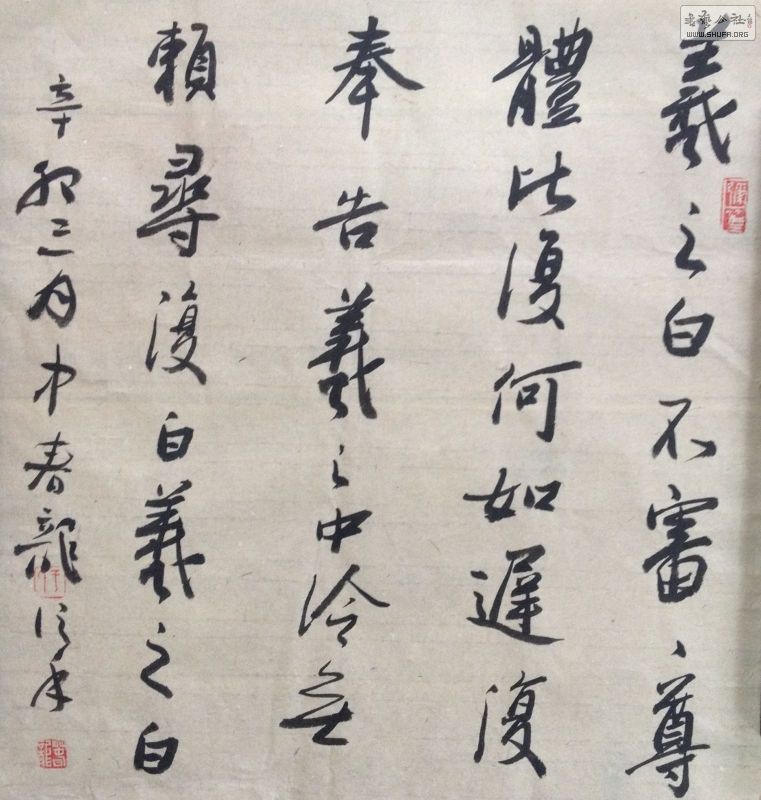 羲之白不審尊
體比復何如遲復
奉告羲之中冷無
賴尋復白羲之白
辛卯三月中春龍
書藝公社
WWW.SHUFA.ORG